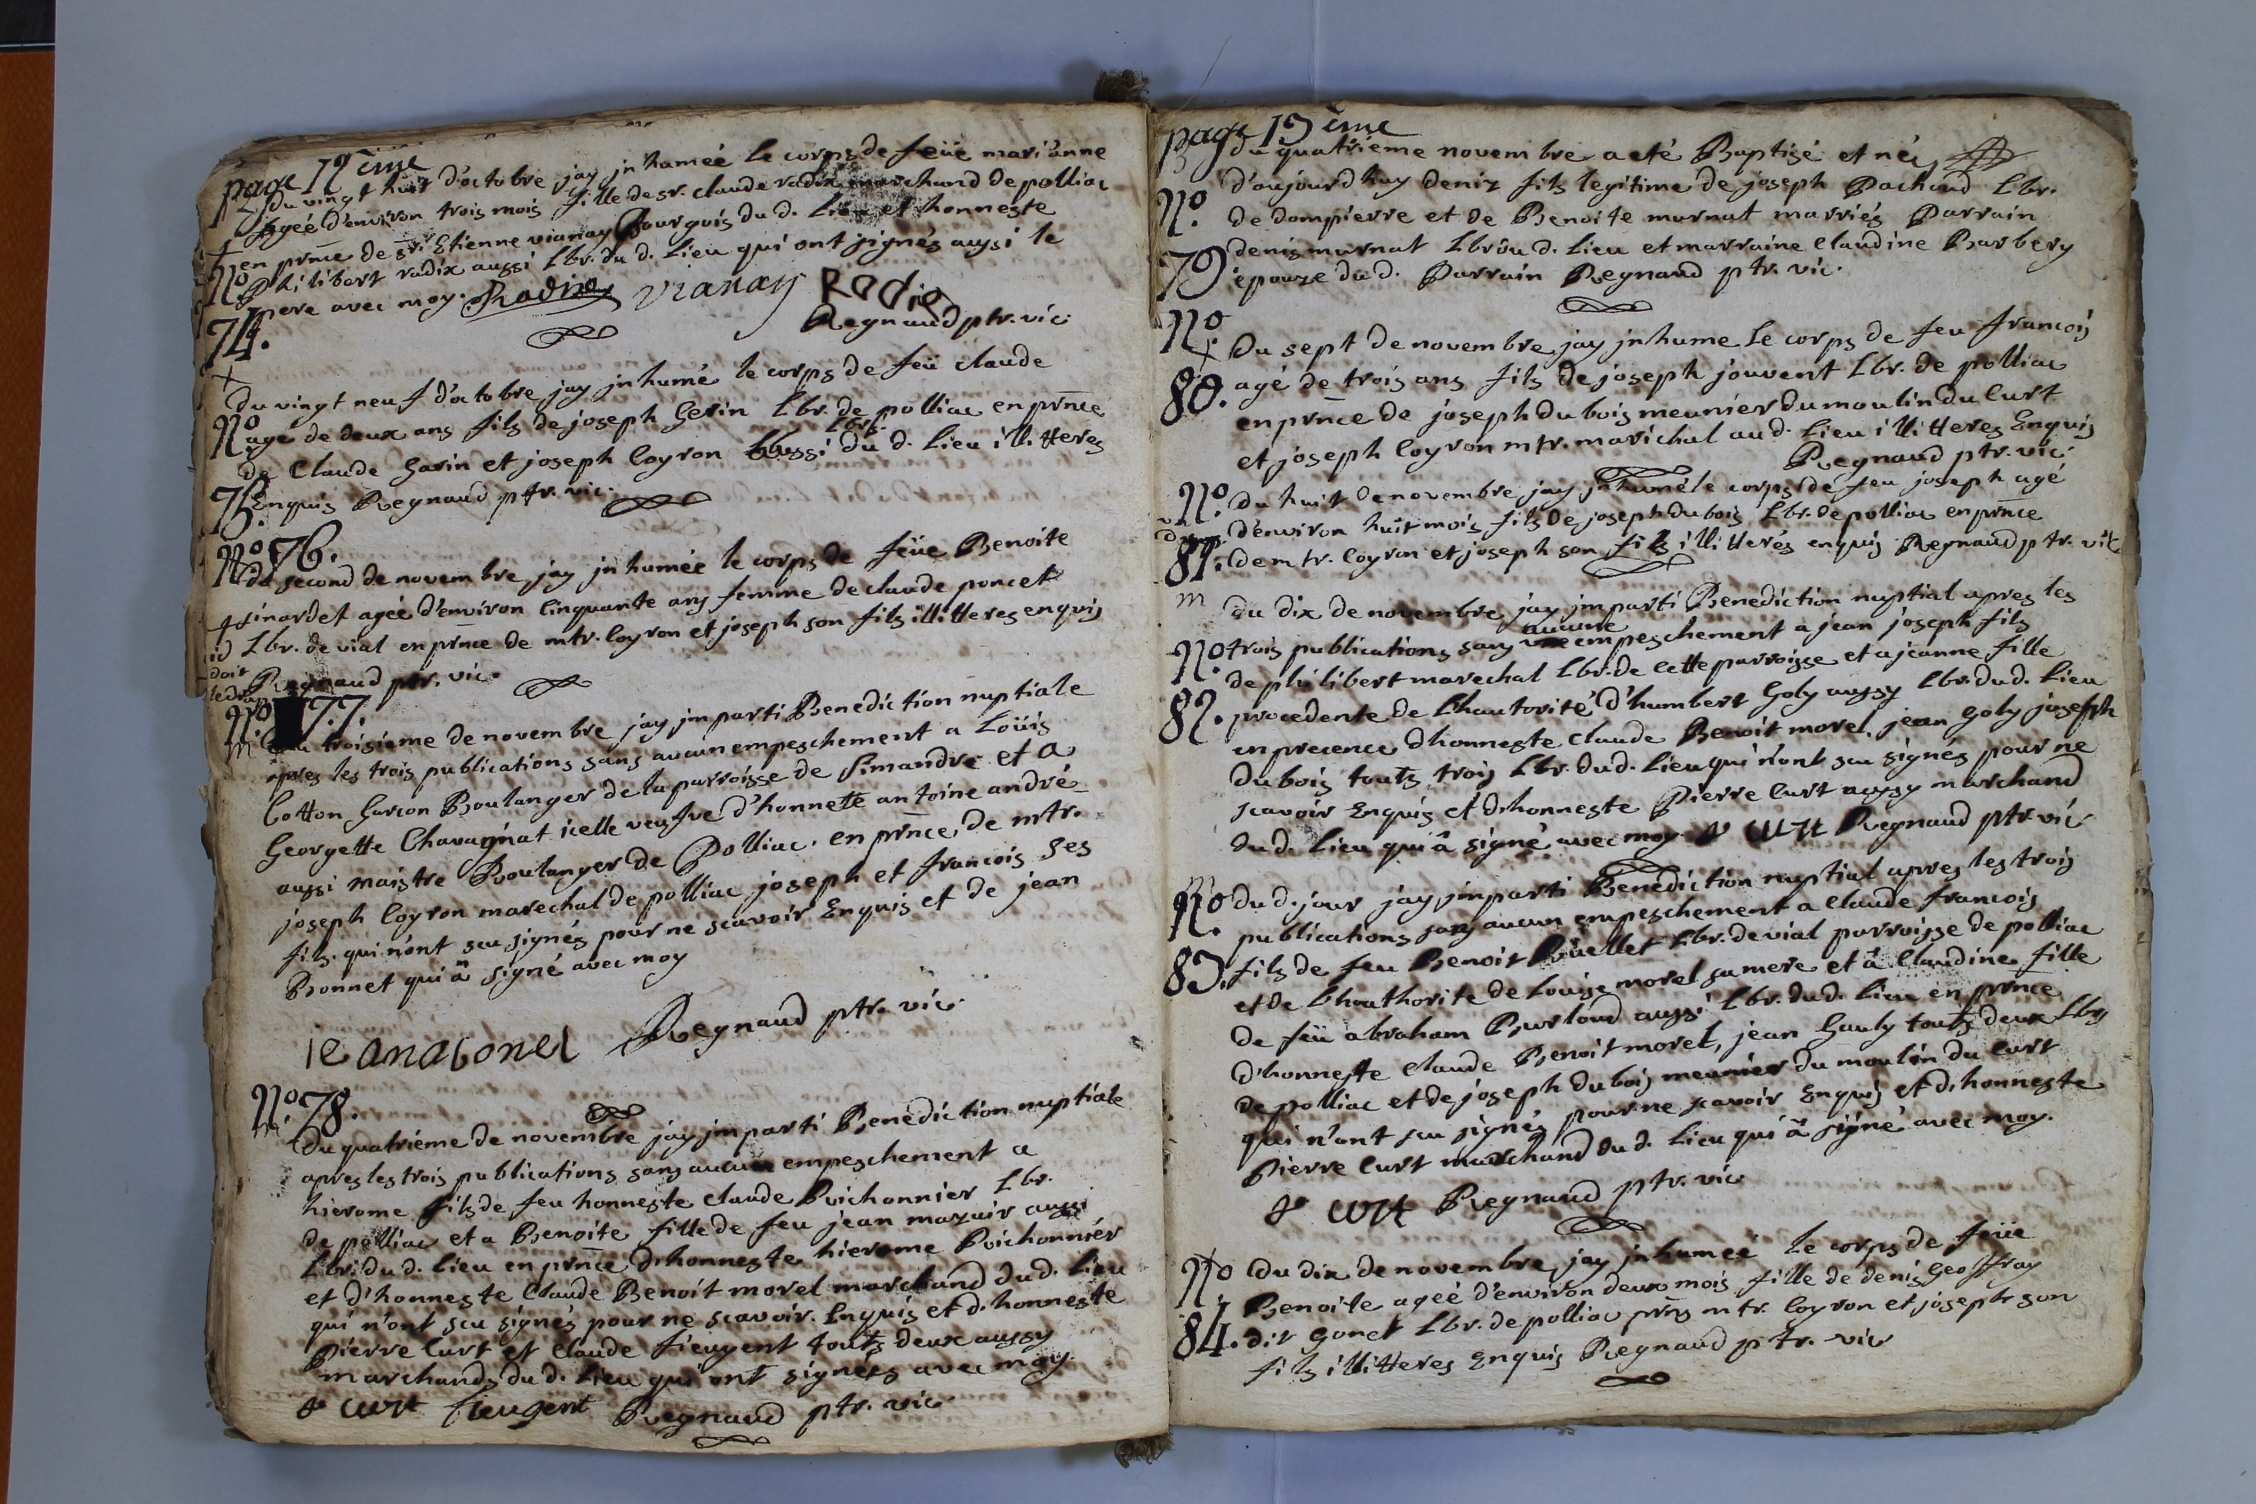 page 12eme
Du vingt huit d'octobre jay jnhumeé le corps de feüe mari'anne
agée d'environ trois mois fille de sr. claude radix marchand de polliac
en prnce de sri Etienne vianay Bourgois du d. Lieu et honneste
Philibert radix aussi Lbr. du d. Lieu qui ont signés aussi le
pere avec moy. Radix vianay Radix
No 74.
Regnaud ptr. vic.
Du vingt neuf d'octobre jay jnhumé le corps de feü claude
agé de deux ans fils de joseph Gerin Lbr. de polliac en prnce
de Claude Garin et joseph Coyron Lbrs. aussi du d. Lieu illitteres
Enquis Regnaud ptr. vic.
No 75.
No 76.
du second de novembre jay jnhumée le corps de feüe Benoite
sinardet agée d'environ Cinquante ans femme de claude poncet
Lbr. de vial en prnce de mtr. Coyron et joseph son fils illitteres enquis
Regnaud ptr. vic.
doit
No 77.
m
Du troisieme de novembre jay jmparti Benediction nuptiale
apres les trois publications sans aucun empeschement a Loüis
Cotton Garcon Boulanger de la parroisse de Simandre et a
Georgette Chavagnat icelle veufve d'honnette antoine andré
aussi maistre Boulanger de Polliac. en prnce de mtr.
joseph Coyron marechal de polliac joseph et francois ses
fils. qui n'ont scu signés pour ne scavoir Enquis et de jean
Bonnet qui â signé avec moy
ieanabonet Regnaud ptr. vic.
No. 78.
m
Du quatrieme de novembre jay jmparti Benédiction nuptiale
apres les trois publications sans aucun empeschement a
hierome fils de feu honneste claude Buichonnier Lbr.
de polliac et a Benoite fille de feu jean mazuir aussi
Lbr. du d. lieu en prnce d'honneste hierome Buichonnier
et d'honneste Claude Benoit morel marchand du d. lieu
qui n'ont scu signés pour ne scavoir. Enquis et d'honneste
Pierre Curt et Claude fieugent touts deux aussy
marchands du d. lieu qui ont signées avec moy
curt fieugent Regnaud ptr. vic
page 13eme
du quatrieme novembre a eté Baptisé et néé
d'aujourdhuy deniz fils legitime de joseph Pachoud Lbr.
de dompierre et de Benoite murnat marriés Parrain
denis murnat Lbr du d. Lieu et marraine Claudine Barbery
epouze du d. Parrain Regnaud ptr. vic.
No. 79
No. 80.
Du sept de novembre jay jnhume le corps de feu francois
agé de trois ans fils de joseph jouvent Lbr. de polliac
en prnce de joseph du bois meunier du moulin du Curt
et joseph Coyron mtr. marichal au d. Lieu illitteres Enquis
Regnaud ptr. vic.
No. 81.
Du huit de novembre jay jnhumé le corps de feu joseph agé
d'environ huit mois fils de joseph du bois Lbr. de polliac en prnce
de mtr. Coyron et joseph son fils illitterés enquis Regnaud ptr. vic
m
Du dix de novembre jay jmparti Benediction nuptial apres les
trois publications sans aucune empeschement a jean joseph fils
de philibert marechal Lbr. de cette parroisse et a jeanne fille
procedente de Lhautorité d'humbert Goly aussy Lbr. du d. lieu
en precence d'honneste Claude Benoit morel, jean Goly joseph
Du bois touts trois Lbr. du d. Lieu qui n'ont scu signés pour ne
scavoir Enquis et d'honneste Pierre Curt aussy marchand
du d. lieu qui â signé avec moy. curt Regnaud ptr. vic
No. 82.
m
No. 83.
Du d. jour jay jmparti Benediction nuptial apres les trois
publications sans aucun empeschement a Claude francois
fils de feu Benoit Buellet Lbr. de vial parroisse de polliac
et de Lhouthorite de Louise morel sa mere et â Claudine fille
de feü abraham Burloud aussi Lbr. du d. lieu en prnce
d'honneste Claude Benoit morel, jean Gauly touts deux Lbrs
de polliac et de joseph du bois meunier du moulin du Curt
qui n'ont scu signés pour ne scavoir Enquis et d'honneste
Pierre Curt marchand du d. lieu qui â signé avec moy.
curt Regnaud ptr. vic
No 84.
Du dix de novembre jay jnhumeé le corps de feüe
Benoite ageé d'environ deux mois fille de denis Geoffray
dit Gonet Lbr. de polliac prns mtr. Coyron et joseph son
fils illitteres Enquis Regnaud ptr. vic